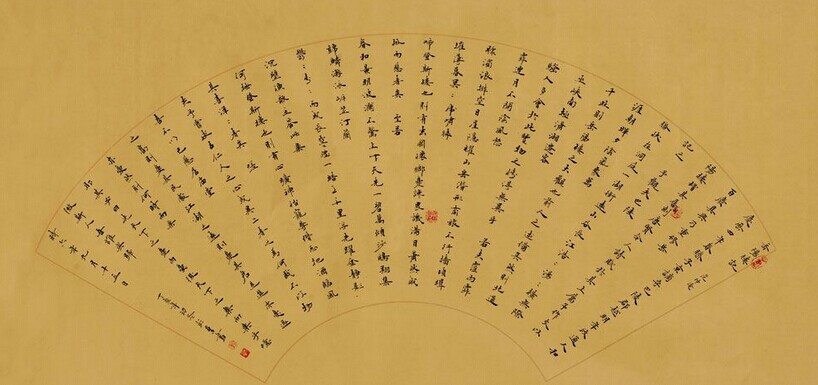 岳陽樓記
慶曆四年春滕子京謫守巴陵郡越明年政通人和
百廢具興乃重修岳
陽樓增其舊制刻唐賢今人詩賦於其上屬予作文以
記之 予觀夫巴陵
勝狀在洞庭一湖銜遠山吞長江浩浩湯湯橫無際
涯朝暉夕陰氣象萬
千此則岳陽樓之大觀也前人之述備矣然則北通
巫峽南極瀟湘遷客
騷人多會於此覽物之情得無異乎 若夫霪雨霏
霏連月不開陰風怒
號濁浪排空日星隱曜山岳潛形商旅不行檣傾楫
摧薄暮冥冥虎嘯猿
啼登斯樓也則有去國懷鄉憂讒畏譏滿目蕭然感
極而悲者矣 至若
春和景明波瀾不驚上下天光一碧萬頃沙鷗翔集
錦鱗游泳岸芷汀蘭
鬱鬱青青而或長煙一空皓月千里浮光躍金靜影
沉璧漁歌互答此樂
何極登斯樓也則有心曠神怡寵辱皆忘把酒臨風
其喜洋洋者矣 嗟
夫予嘗求古仁人之心或異二者之為何哉不以物
喜不以己悲居廟堂
之高則憂其民處江湖之遠則憂其君是進亦憂退
亦憂然則何時而樂
耶其必曰先天下之憂而憂後天下之樂而樂乎噫
微斯人吾誰與歸
時六年九月十五日